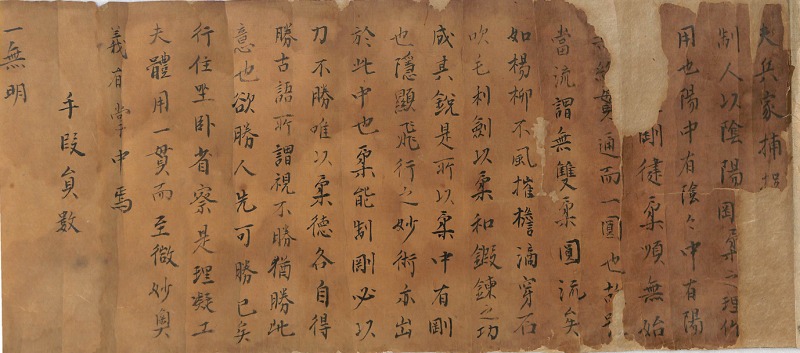 夫兵家捕
制人以陰陽剛柔之理作
用也陽中有陰々中有陽
剛健柔順無始
貫通而一圓也故
當流謂無雙柔圓流矣
如楊柳不風摧檐滴穿石
吹毛利劍以柔和鍛鍊之功
成其銳是所以柔中有剛
也隱顯飛行之妙術亦出
於此中也柔能制剛必以
刀不勝唯以柔德各自得
勝古語所謂視不勝猶勝此
意也欲勝人先可勝己矣
行住坐臥省察是理凝工
夫體用一貫而至微妙奧
義有掌中焉
手段員数
一無明